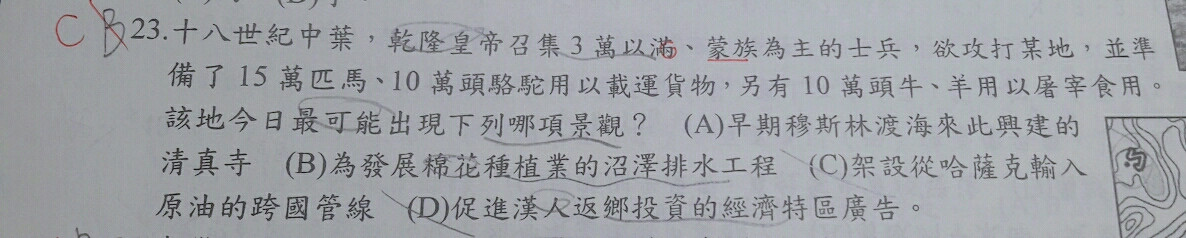 C B 23.十八世紀中葉，乾隆皇帝召集 3 萬以滿、蒙族為主的士兵，欲攻打某地，並準
備了 15 萬匹馬、10 萬頭駱駝用以載運貨物，另有 10 萬頭牛、羊用以屠宰食用。
該地今日最可能出現下列哪項景觀？ (A)早期穆斯林渡海來此興建的
清真寺 (B)為發展棉花種植業的沼澤排水工程 (C)架設從哈薩克輸入
原油的跨國管線 (D)促進漢人返鄉投資的經濟特區廣告。